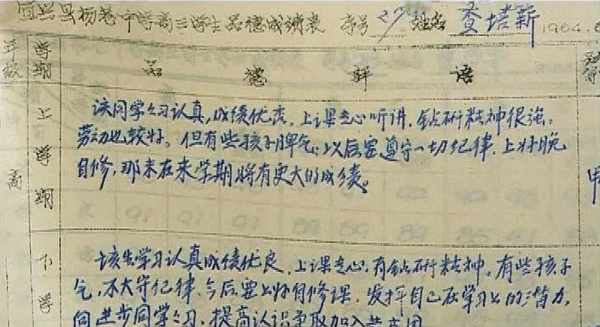 宜兴县杨巷中学高三学生品德成绩表 序号27 姓名 查培新 1964.6
年级 学期 品德评语
上学期 该同学学习认真,成绩优秀,上课专心听讲,钻研精神很强,
劳动也较好。但有些孩子脾气,以后要遵守一切纪律,上好晚
自修,那末在来学期将有更大的成绩。
高
甲
下学 该生学习认真成绩优良,上课专心,有钻研精神,有些孩子
气,不大守纪律,今后要上好自修课,发挥自己在学习上的潜力,
向进步同学学习,提高认识争取加入共青团